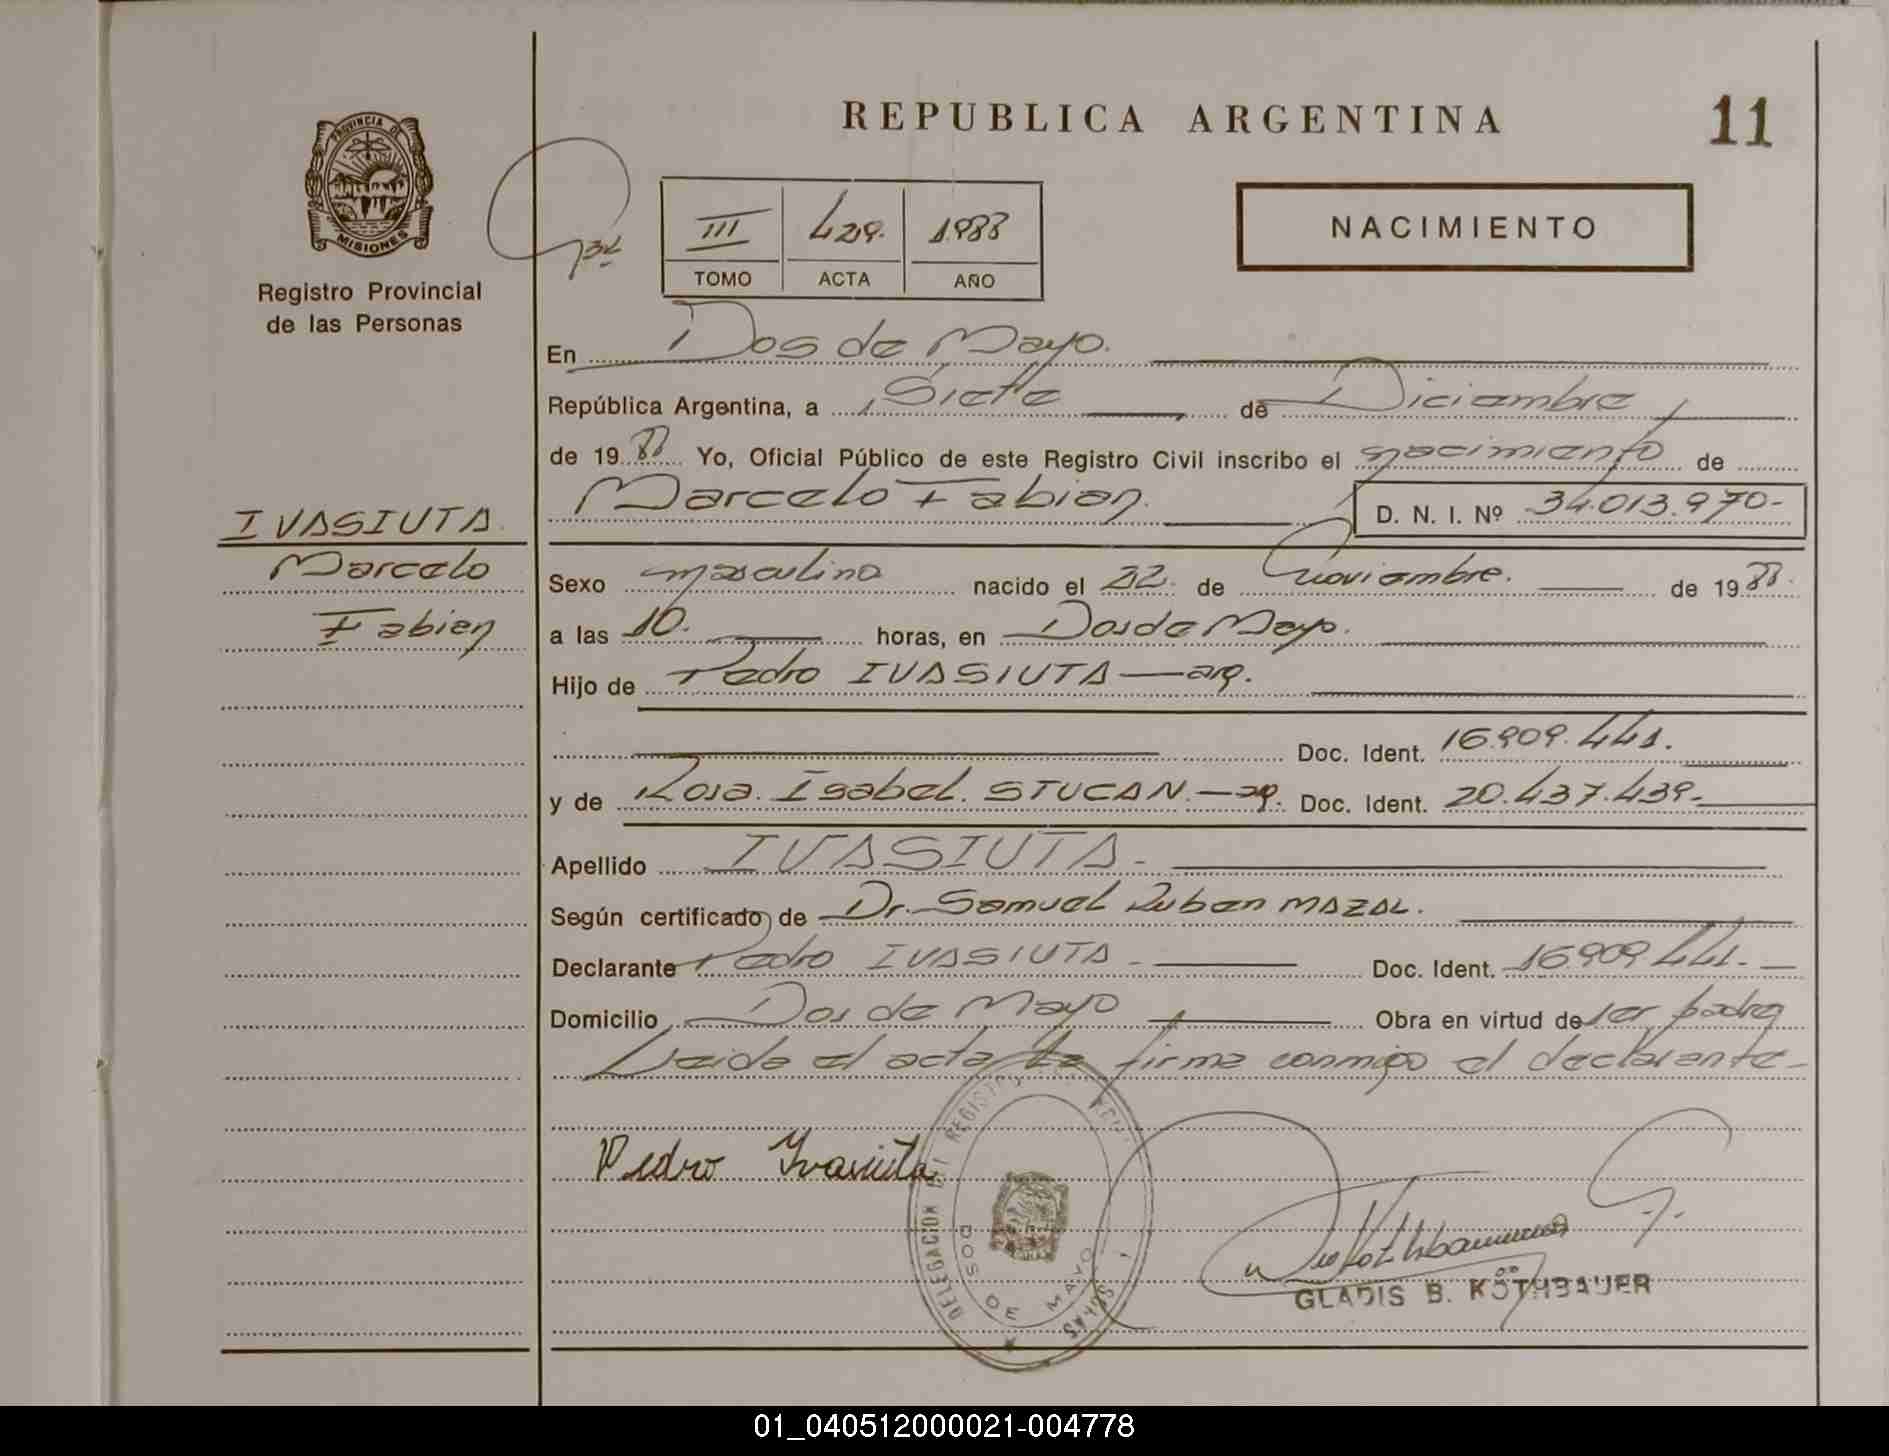 REPUBLICA ARGENTINA
11
PROVINCIA DE
MISIONES
Registro Provincial
de las Personas
III 429. 1988
TOMO ACTA AÑO
NACIMIENTO
En Dos de Mayo.
República Argentina, a Siete de Diciembre
de 1988 Yo, Oficial Público de este Registro Civil inscribo el nacimiento de
Marcelo Fabian. D. N. I. Nº 34.013.970-
IVASIUTA
Marcelo
Fabien
Sexo masculino nacido el 22. de Noviembre. de 1988.
a las 10. horas, en Dos de Mayo.
Hijo de Pedro IVASIUTA — arg.
Doc. Ident. 16.909.441.
y de Rosa Isabel. STUCAN. — arg. Doc. Ident. 20.437.439-
Apellido IVASIUTA -
Según certificado de Dr. Samuel Ruben MAZAL.
Declarante Pedro IVASIUTA - Doc. Ident. 16.909.441.-
Domicilio Dos de Mayo Obra en virtud de ser padre
Leida el acta la firma conmigo el declarante-
Pedro Ivasiuta
DELEGACION DEL REGISTRO
DOS DE MAYO
GLADIS B. KÖTHBAUER
01_040512000021-004778